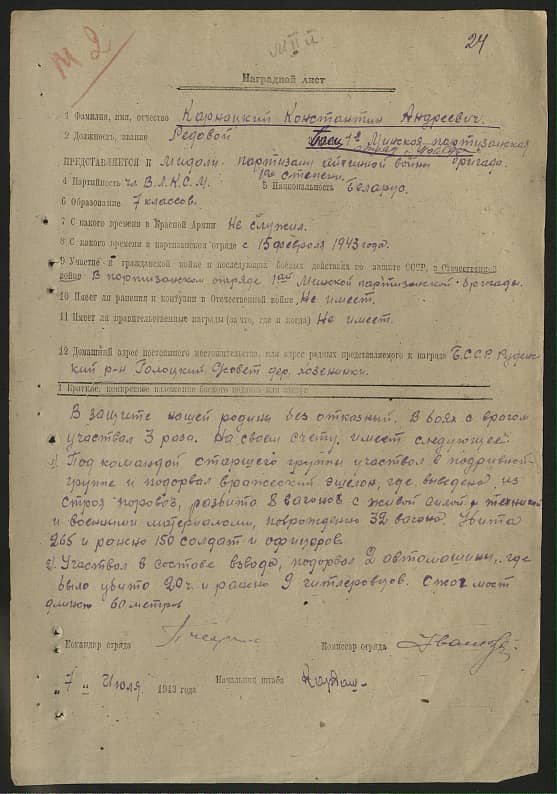 24
Наградной лист
1 Фамилия, имя, отчество Карнацкий Константин Андреевич.
2 Должность, звание Редовой Боец 1ой Минской партизанской
ПРЕДСТАВЛЯЕТСЯ К Мидоли партизану отечественной войны бригады.
1ой степени.
4 Партийность чл В.Л.К.С.М. 5 Национальность Беларус.
6 Образование 7 классов.
7 С какого времени в Красной Армии Не служил.
8 С какого времени в партизанском отряде с 15 февроля 1943 года.
9 Участие в гражданской войне и последующих боевых действиях по защите СССР, в Отечественной
войне В портизанском отряде 1ой Минской партизанской бригады.
10 Имеет ли ранения и контузии в Отечественной войне Не имеет.
11 Имеет ли правительственные награды (за что, где и когда) Не имеет.
12 Домашний адрес постоянного местожительства, или адрес родных представляемого к награде Б.С.С.Р. Руденс-
кий р-н Голоцкий С/совет дер.
1 Краткое, конкретное изложение боевого подвига или заслуг
В защите нашей родины без отказный. В боях с врогом
участвол 3 раза. На своем счету имеет следующее:
1) Под командой старшего группы участвол в подривной
группе и подорвал вражеский эшелон, где выведено из
строя поровоз, розбито 8 вагонов с живой силой и техникой
и военними материаломи, поврождено 32 вагона. Убито
265 и ранено 150 солдат и офицеров.
2) Участвол в составе взвода, подорвал 2 автомашины, где
было убито 20ч. и ранено 9 гитлеровцов. Сжог мост
длиною 60 метров
Командир отряда Комиссар отряда
"7" Июля 1943 года Начальник штаба